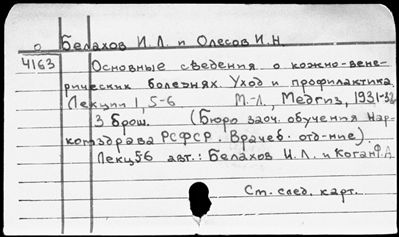 о Белахов И. Л. и Олесов И. Н.
4163 Основные сведения о кожно-вене-
рических болезнях. Уход и профилактика.
Лекции 1, 5-6 М.-Л., Медгиз, 1931-32
3 брош. (Бюро заоч. обучения Нар-
комздрава РСФСР. Врачеб. отд-ние).
Лекц 56 авт.: Белахов И. Л. и Коган Ф. А
См. след. карт.